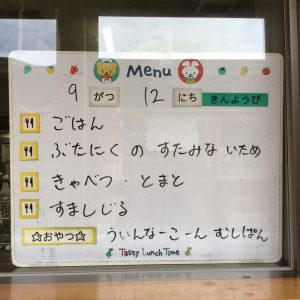 Menu
9 がつ 12 にち きんようび
ごはん
ぶたにく の すたみな いため
きゃべつ・とまと
すましじる
☆おやつ☆ ういんなーこーん むしぱん
Tasty Lunch Time